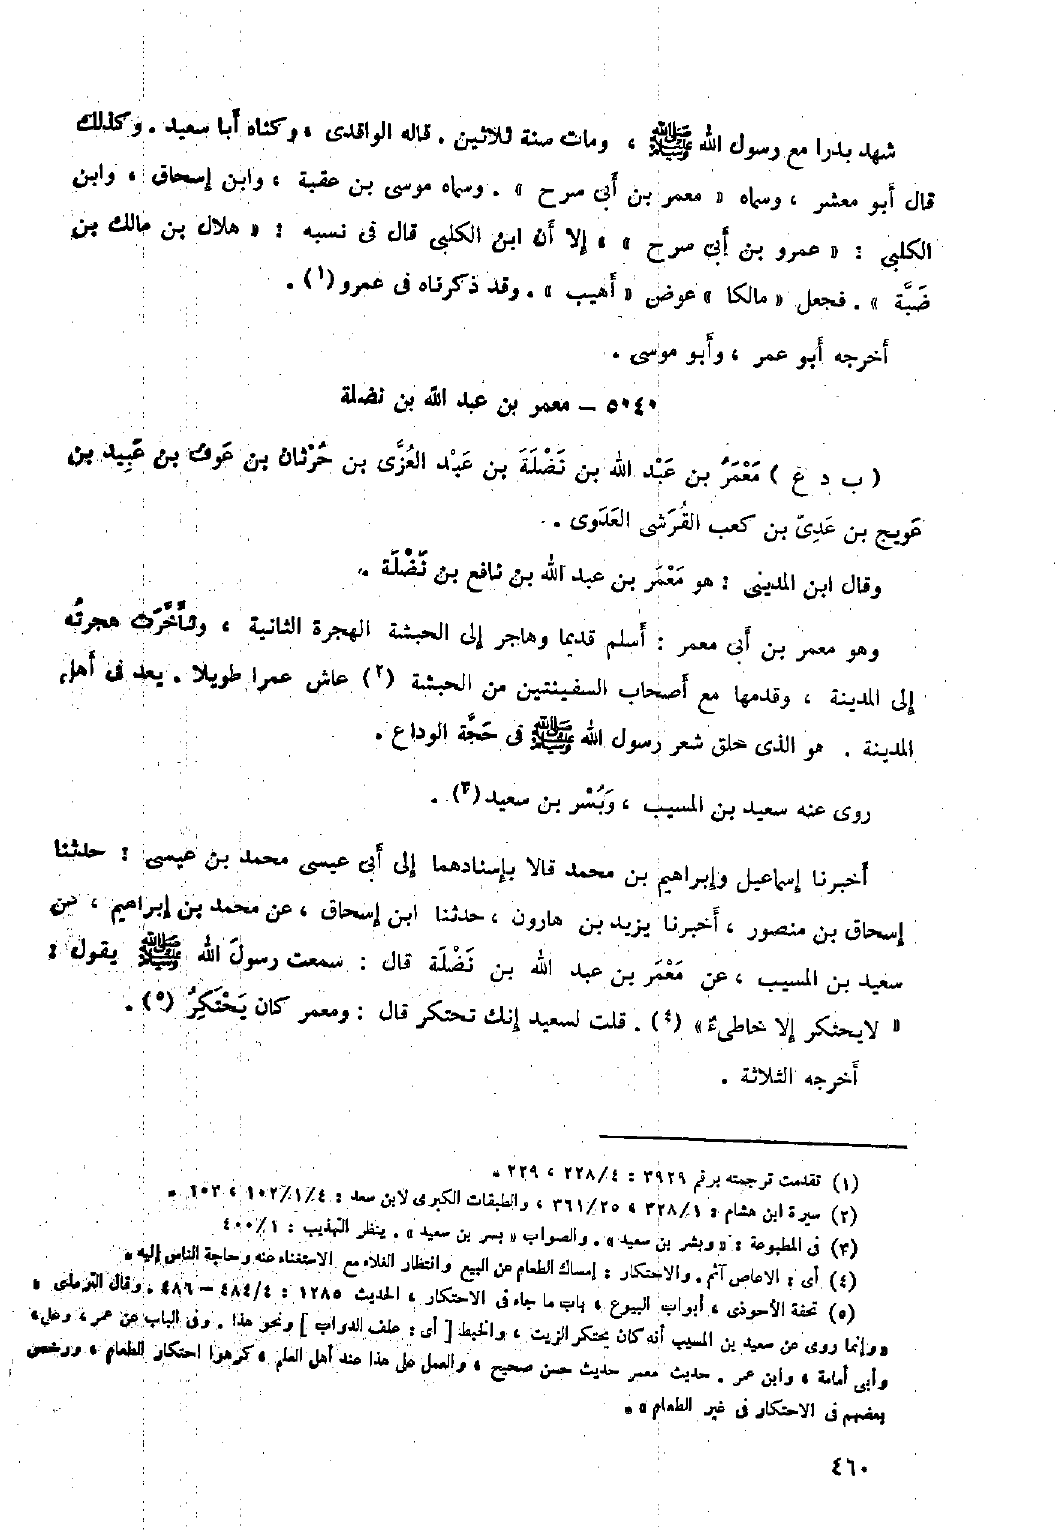 شهد بدرا مع رسول الله ﷺ ، ومات سنة ثلاثين . قاله الواقدى ، وكناه أبا سعيد . وكذلك
قال أبو معشر ، وسماه « معمر بن أبى سرح » . وسماه موسى بن عقبة ، وابن إسحاق ، وابن
الكلبى : « عمرو بن أبى سرح » ، إلا أن ابن الكلبى قال فى نسبه : « هلال بن مالك بن
ضَبَّة » . فجعل « مالكا » عوض « أهيب » . وقد ذكرناه فى عمرو (١) .
أخرجه أبو عمر ، وأبو موسى .
٥٠٤٠ – معمر بن عبد الله بن نضلة
( ب د ع ) مَعْمَرُ بن عَبْد الله بن نَضْلَةَ بن عَبْد العُزَّى بن حُرْثان بن عَوف بن عَبِيد بن
عَويج بن عَدِىّ بن كعب القُرَشى العَدَوى .
وقال ابن المدينى : هو مَعْمَر بن عبد الله بن نافع بن نَضْلَة .
وهو معمر بن أبى معمر : أسلم قديما وهاجر إلى الحبشة الهجرة الثانية ، وتأَخَّرَت هجرتُه
إلى المدينة ، وقدمها مع أصحاب السفينتين من الحبشة (٢) عاش عمرا طويلا . يعد فى أهل
المدينة . هو الذى حلق شعر رسول الله ﷺ فى حَجَّة الوداع .
روى عنه سعيد بن المسيب ، وَبُسْر بن سعيد (٣) .
أخبرنا إسماعيل وإبراهيم بن محمد قالا بإسنادهما إلى أبى عيسى محمد بن عيسى : حدثنا
إسحاق بن منصور ، أخبرنا يزيد بن هارون ، حدثنا ابن إسحاق ، عن محمد بن إبراهيم ، عن
سعيد بن المسيب ، عن مَعْمَر بن عبد الله بن نَضْلَة قال : سمعت رسولَ الله ﷺ يقول :
« لايحتكر إلا خاطىءٌ » (٤) . قلت لسعيد إنك تحتكر قال : ومعمر كان يَحْتَكِرُ (٥) .
أخرجه الثلاثة .
(١) تقدمت ترجمته برقم ٣٩٢٩ : ٢٢٨/٤ ، ٢٢٩ .
(٢) سيرة ابن هشام : ٣٢٨/١ ، ٣٦١/٢٥ ، والطبقات الكبرى لابن سعد : ١٠٢/١/٤ ، ٢٠٣ .
(٣) فى المطبوعة : « وبشر بن سعيد » . والصواب « بسر بن سعيد » . ينظر التهذيب : ٤٠٠/١
(٤) أى : الاعاص آثم . والاحتكار : إمساك الطعام عن البيع وانتظار الغلاء مع الاستغناء عنه وحاجة الناس إليه .
(٥) تحفة الأحوذى ، أبواب البيوع ، باب ما جاء فى الاحتكار ، الحديث ١٢٨٥ : ٤٨٤/٤ – ٤٨٦ . وقال الترمذى :
« وإنما روى عن سعيد بن المسيب أنه كان يحتكر الزيت ، والخبط [ أى : علف الدواب ] ونحو هذا . وفى الباب عن عمر ، وعلى ،
وأبى أمامة ، وابن عمر . حديث معمر حديث حسن صحيح ، والعمل على هذا عند أهل العلم ، كرهوا احتكار الطعام ، ورخص
بعضهم فى الاحتكار فى غير الطعام » .
٤٦٠